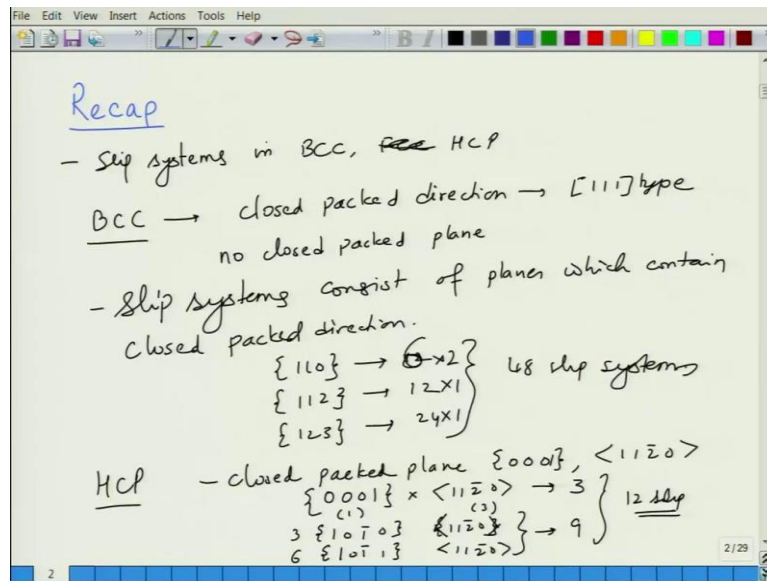 File Edit View Insert Actions Tools Help
Recap
- Slip systems in BCC, HCP
BCC → closed packed direction → [111] type
no closed packed plane
- Slip systems consist of planes which contain
closed packed direction.
{110} → 6×2
{112} → 12×1 } 48 slip systems
{123} → 24×1
HCP - closed packed plane {0001}, <112̄0>
{0001} × <112̄0> → 3
(1) (3) } 12 slip
3 {101̄0} {112̄0} } → 9
6 {101̄1} <112̄0>
2/29
2